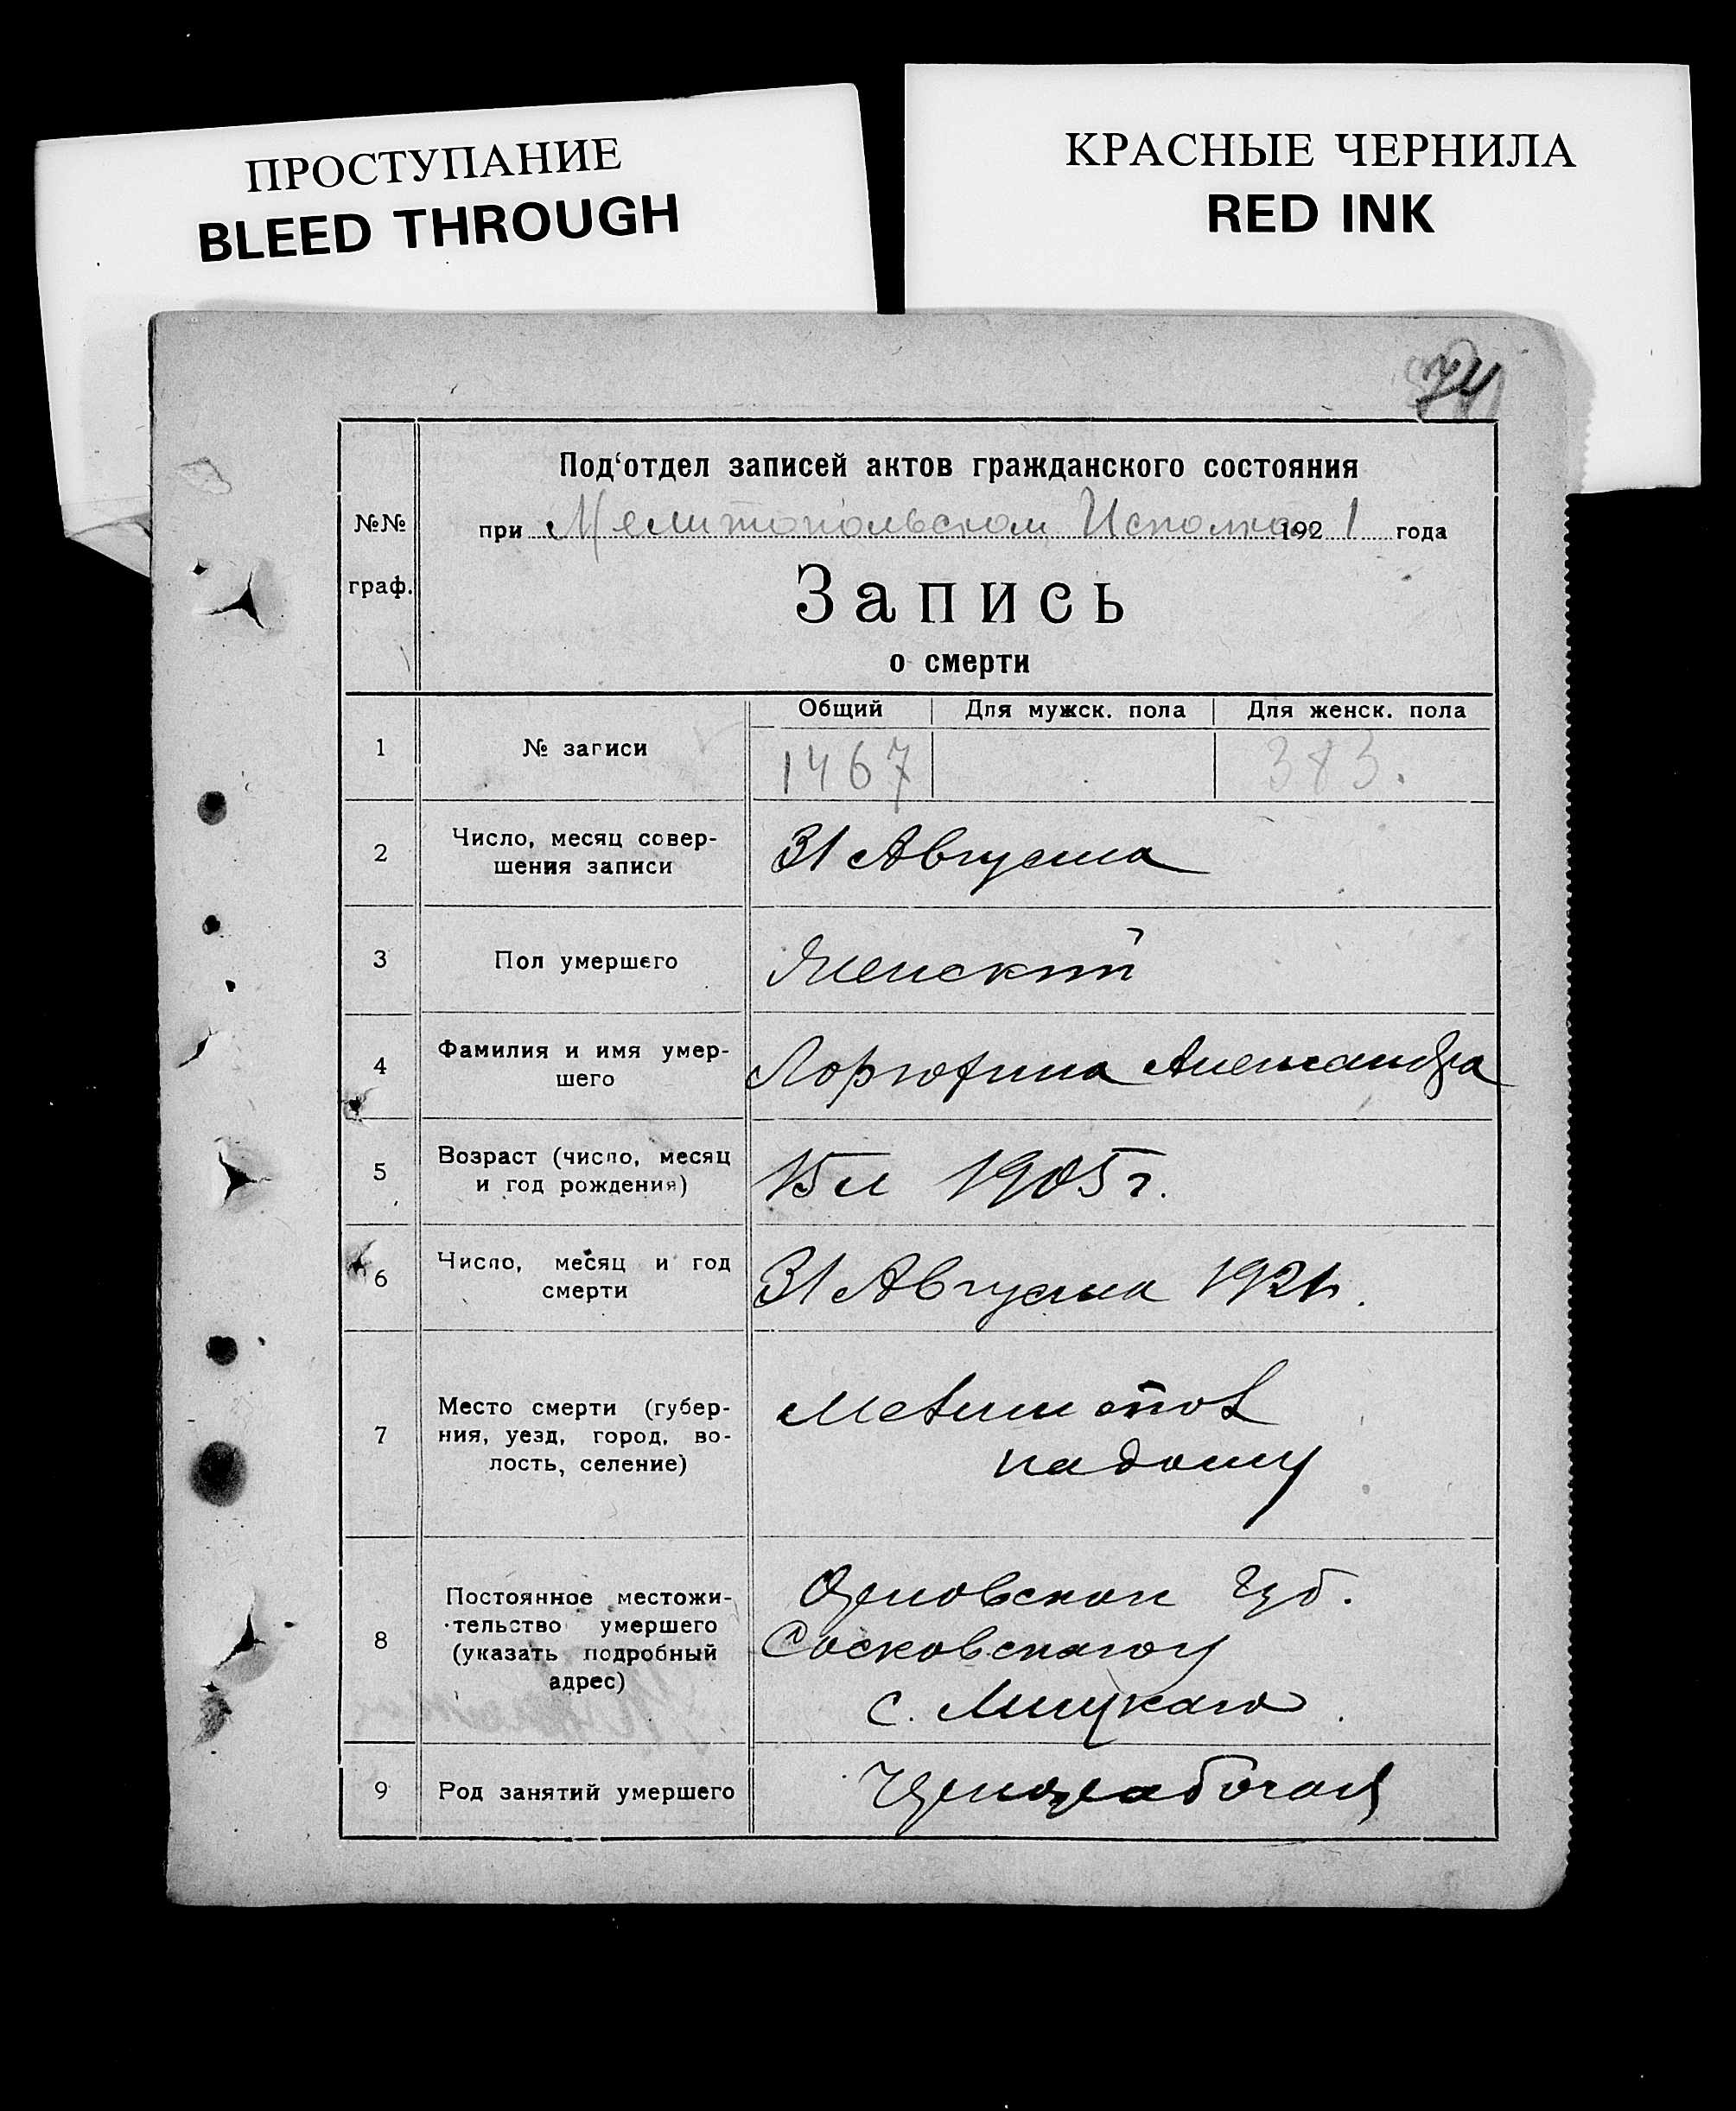 ПРОСТУПАНИЕ
BLEED THROUGH
КРАСНЫЕ ЧЕРНИЛА
RED INK
74
Под‘отдел записей актов гражданского состояния
№№ граф.
при Мелитопольском Исполко 1921 года
Запись
о смерти
Общий Для мужск. пола Для женск. пола
1 № записи 1467 383.
2 Число, месяц совер-
шения записи 31 Августа
3 Пол умершего Женский
4 Фамилия и имя умер-
шего Александра
5 Возраст (число, месяц
и год рождения) 15 л 1905 г.
6 Число, месяц и год
смерти 31 Августа 1921.
7 Место смерти (губер-
ния, уезд, город, во-
лость, селение) Мелитопол
на дому
8 Постоянное местожи-
тельство умершего
(указать подробный
адрес) Орловской Губ.
Сосковскаго у
с.
9 Род занятий умершего Чернорабочая